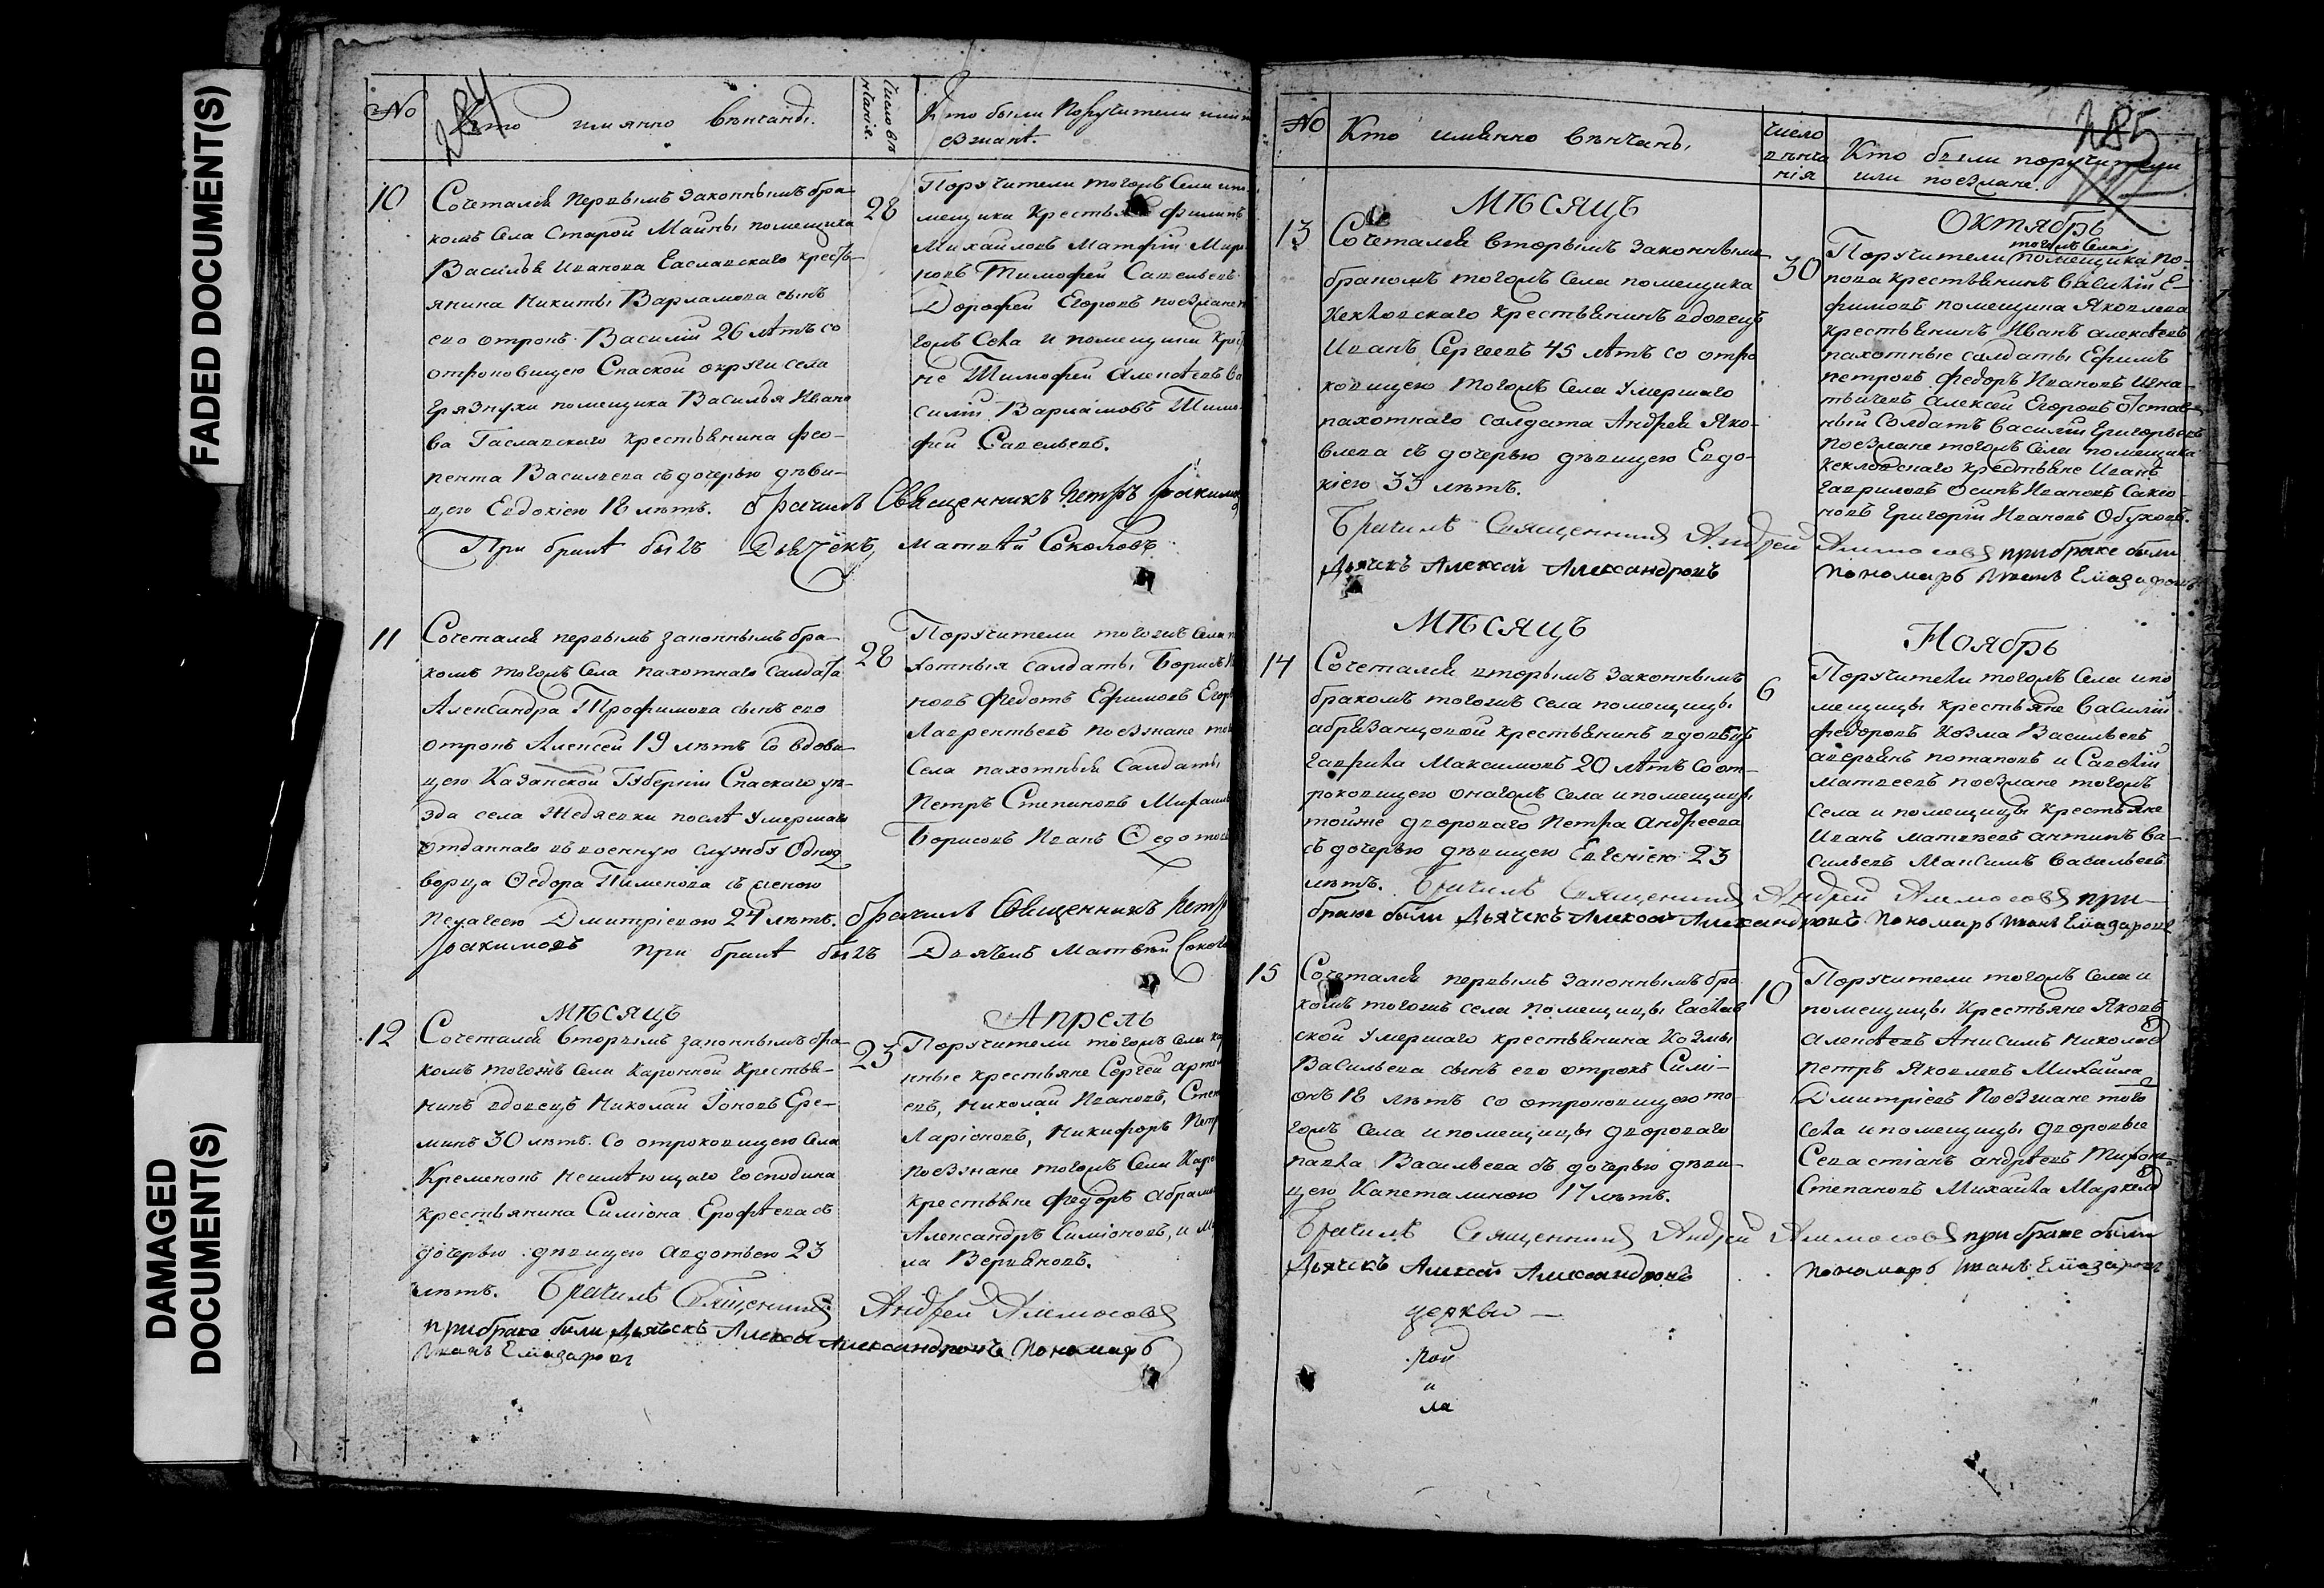 FADED DOCUMENT(S)
DAMAGED
DOCUMENT(S)
284
No
Кто имянно венчаны.
Число вѣнчанія.
Кто были Поручители или
езжанѣ.
10
Сочетался первымъ законнымъ бра-
комъ Села Старой Майны помещика
Василья Иванова Еславскаго кресть-
янина Никиты Варламова сынъ
его отрокъ Василий 26 лѣтъ со
отроковицею Спаской округи села
Грязнухи помещика Василья Ивано
ва Гаславскаго крестьянина фео-
пента Васильева съ дочерью дѣви-
цею Евдокиею 18 лѣтъ. брачилъ Священникъ Петръ Іоакимовъ
При бракѣ былъ Дьячекъ, Матвѣй Соколовъ
28
Поручители тогожъ Села и по-
мещика Крестьяне филипъ
Михайловъ Матфій Миро
новъ Тимофей Савельевъ
Дорофей Егоровъ поезжане то
гожъ Села и помещика крес
не Тимофей Алексѣевъ Ва
силий Варламовъ Тимо
фей Савельевъ.
11
Сочетался первымъ законнымъ бра-
комъ тогожъ Села пахотнаго Салдата
Александра Трофимова сынъ его
отрокъ Алексей 19 лѣтъ Со вдови-
цею Казанской Губерніи Спаскаго уѣ-
зда села Жедяевки послѣ умершаго
отданнаго въ военную службу Однод
ворца Федора Пименова съ женою
Пелагеею Дмитріевою 24 лѣтъ. брачилъ Священникъ Петръ
Іоакимовъ при бракѣ былъ Дьячекъ Матвѣй Соколо
28
Поручители тогожъ Села п
хотныя салдаты Борисъ И
новъ Федотъ Ефимовъ Егоръ
Лаврентьевъ поезжане то
Села пахотныя Салдаты
Петръ Степановъ Михаил
Борисовъ Иванъ Федотов
12
Мѣсяцъ
Апрель
Сочетался вторымъ законнымъ бра-
комъ тогожъ Села Каронной Крестья-
нинъ вдовецъ Николай Іоновъ Ере-
минъ 30 лѣтъ. Со отроковицею Села
Кременокъ неимѣющаго Господина
крестьянина Симіона Ерофѣева съ
дочерью дѣвицею Авдотьею 23
лѣтъ. Брачилъ Священникъ Андрей Алмосовъ
при браке были Дьячекъ Алексей Александровъ Пономарь
Иванъ Елиазаровъ
23
Поручители тогожъ Села ка
нные крестьяне Сергей арте
евъ, Николай Ивановъ, Степ
Ларіоновъ, Никифоръ Петр
Поезжане тогожъ Села Каро
крестьяне Федоръ Абрамо
Александръ Симіоновъ, и М
ла Веръяновъ.
285
No
Кто имянно венчаны,
число
вѣнча
нія
Кто были поручители
или поезжане.
Мѣсяцъ
Октябрь
13
Сочетался вторымъ законнымъ
бракомъ тогожъ Села помещика
Кекловскаго крестьянинъ вдовецъ
Иванъ Сергеевъ 45 лѣтъ со отро
ковицею тогожъ Села умершаго
пахотнаго салдата Андрея Яко-
влева съ дочерью дѣвицею Евдо-
кіею 33 лѣтъ.
Брачилъ Священникъ Андрей Алмосовъ при браке были
Дьячекъ Алексей Александровъ Пономарь Иванъ Елиазаровъ
30
тогожъ Села
Поручители помещика По-
пова крестьянинъ Василій Е-
фимовъ помещика Яковлева
крестьянинъ Иванъ алексѣевъ
пахотные салдаты Ефимъ
петровъ федоръ Ивановъ Игна-
тьичевъ Алексей Егоровъ Отстав-
ный Солдатъ Василій Григорьевъ
Поезжане тогожъ Села помещика
Кекловскаго крестьяне Иванъ
Гавриловъ Осипъ Ивановъ Сакіо-
новъ Григорій Ивановъ Обуховъ.
Мѣсяцъ
Ноябрь
14
Сочетался вторымъ законнымъ
бракомъ тогожъ села помещицы
абрезанцовой крестьянинъ вдовецъ
Гаврила Максимовъ 20 лѣтъ со от-
роковицею онагожъ села и помещицы
тойже двороваго Петра Андреева
съ дочерью дѣвицею Евгеніею 23
лѣтъ. Брачилъ Священникъ Андрей Алмосовъ при
браке были Дьячекъ Алексей Александровъ Пономарь Иванъ Елиазаровъ
6
Поручители тогожъ Села и по
мещицы крестьяне Василій
федоровъ Козма Васильевъ
аверьянъ потаповъ и Савелій
матвеевъ поезжане тогожъ
Села и помещицы крестьяне
Иванъ матвеевъ антипъ Ва-
сильевъ Максимъ Васильевъ
15
Сочетался первымъ законнымъ бра
комъ тогожъ села помещицы Еслав
ской умершаго крестьянина Козмы
Васильева сынъ его отрокъ Симі-
онъ 18 лѣтъ со отроковицею то-
гожъ Села и помещицы двороваго
павла Васильева съ дочерью дѣви-
цею Капеталиною 17 лѣтъ.
Брачилъ Священникъ Андрей Алмосовъ при браке были
Дьячекъ Алексей Александровъ Пономарь Иванъ Елиазаровъ
10
Поручители тогожъ Села и
помещицы Крестьяне Яковъ
Алексѣевъ Анисимъ Николаев
Петръ Яковлевъ Михайла
Дмитріевъ Поезжане того
села и помещицы дворовые
Севастіанъ андрѣевъ Тихонъ
Степановъ Михайла Маркело
церкви —
рой
и
ла